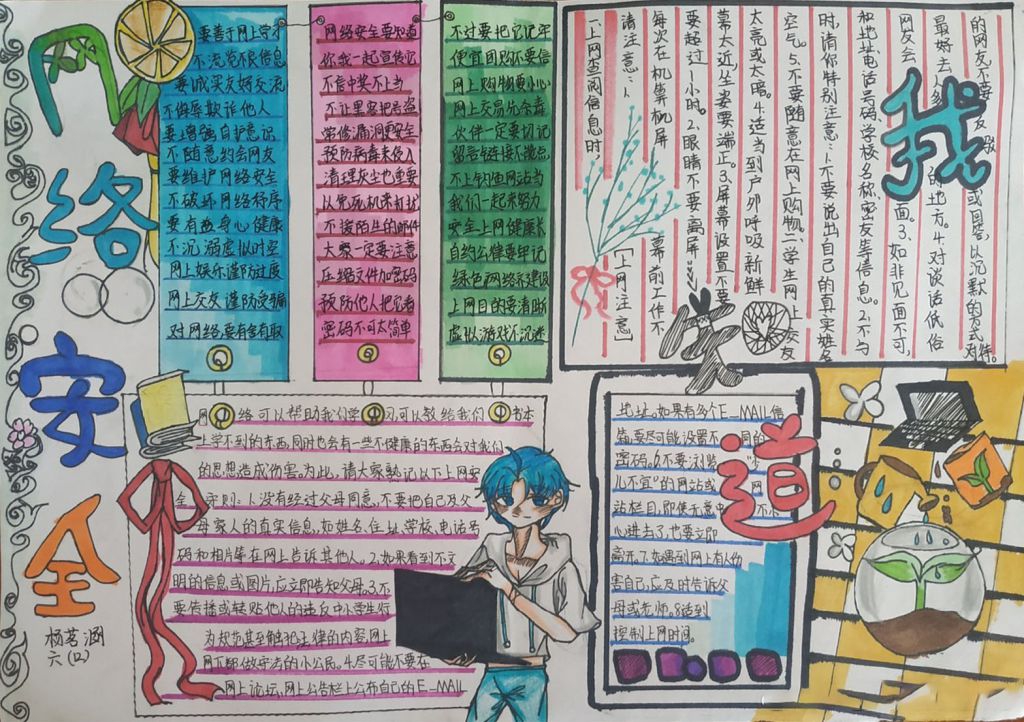 网络安全
我知道
杨茗涵
六(四)
要善于网上学习
不浏览不良信息
要诚实友好交流
不侮辱欺诈他人
要增强自护意识
不随意约会网友
要维护网络安全
不破坏网络秩序
要有益身心健康
不沉溺虚拟时空
网上娱乐谨防过度
网上交友谨防受骗
对网络要有舍有取
网络安全要知道
你我一起宣传它
不信中奖不上当
不让黑客把号盗
常修漏洞更安全
预防病毒来侵入
清理灰尘也重要
以免死机来打扰
不接陌生的邮件
大家一定要注意
压缩文件加密码
预防他人把它看
密码不可太简单
不过要把它记牢
便宜团购不要信
网上购物要小心
网上交易先杀毒
伙伴一定要切记
留言链接不能点
不上钓鱼网站当
我们一起来努力
安全上网健康长
自约公律要牢记
绿色网络齐建设
上网目的要清晰
虚拟游戏不沉迷
一、上网查阅信息时
请注意:1.
每次在计算机屏幕前工作不
要超过1小时。2.眼睛不要离屏
幕太近,坐姿要端正。3.屏幕设置不要
太亮或太暗。4.适当到户外呼吸新鲜
空气。5.不要随意在网上购物。二、学生网上交友
时,请你特别注意:1.不要说出自己的真实姓名
和地址、电话号码、学校名称、密友等信息。2.不与
网友会面。3.如非见面不可,
最好去人多的地方。4.对谈话低俗
的网友,不要反驳或回答,以沉默的方式对待。
「上网注意」
网络可以帮助我们学习,可以教给我们书本
上学不到的东西,同时也会有一些不健康的东西会对我们
的思想造成伤害。为此,请大家熟记以下上网安
全守则:1.没有经过父母同意,不要把自己及父
母家人的真实信息,如姓名、住址、学校、电话号
码和相片等在网上告诉其他人。2.如果看到不文
明的信息或图片,应立即告知父母。3.不
要传播或转贴他人的违反中小学生行
为规范甚至触犯法律的内容,网上
网下都做守法的小公民。4.尽可能不要在
网上论坛,网上公告栏上公布自己的E_MAIL
地址。如果有多个E_MAIL信
箱,要尽可能设置不同的
密码。6.不要浏览“少
儿不宜”的网站或网
站栏目,即使无意中不小
心进去了,也要立即
离开。7.如果遇到网上有人伤
害自己,应及时告诉父
母或老师。8.适到
控制上网时间。